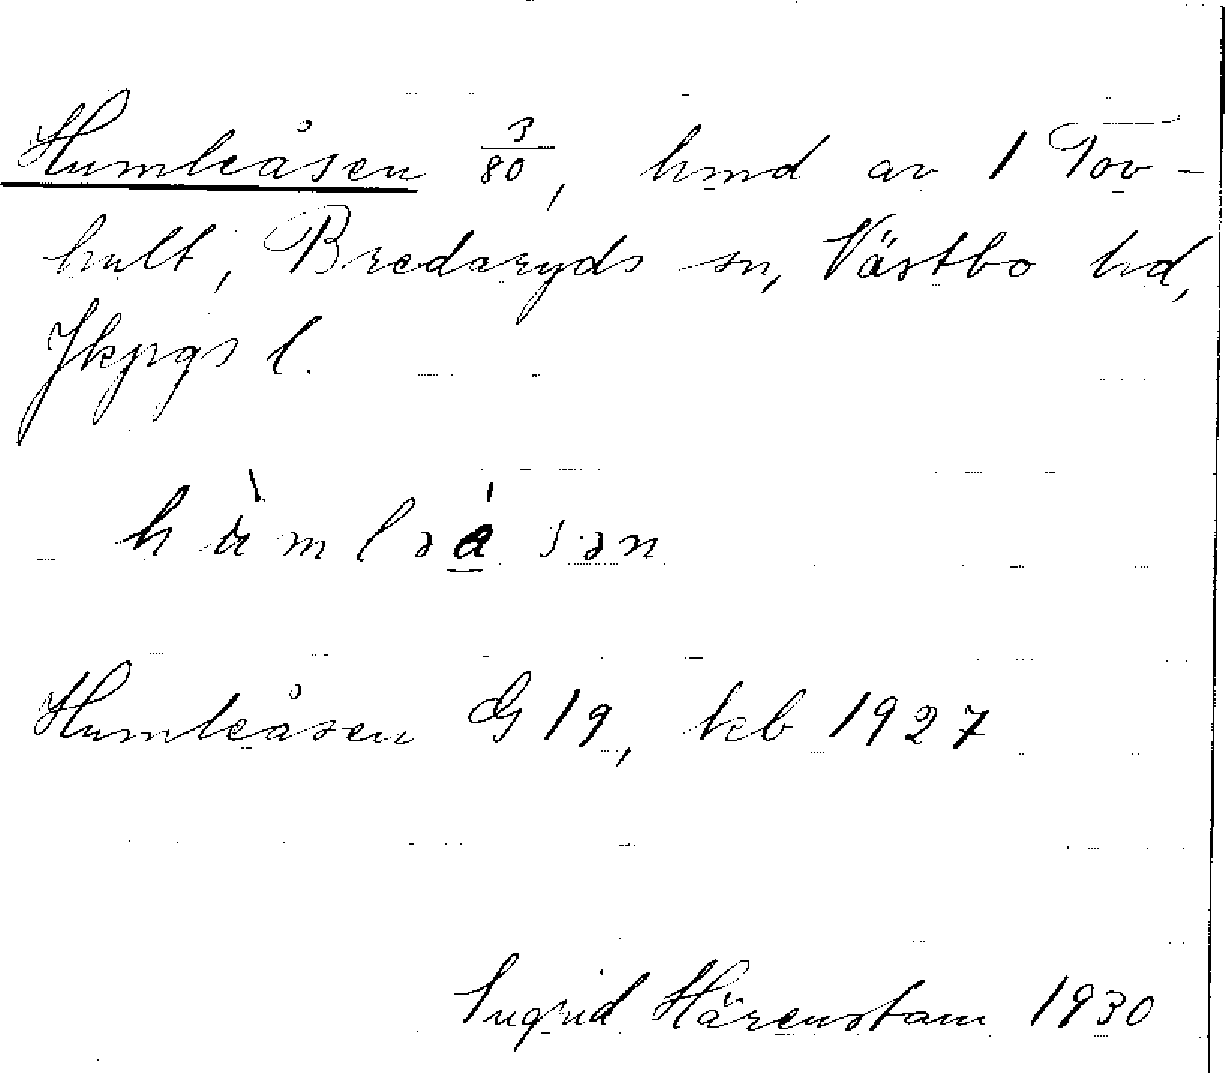 Humleåsen 3/80, hmd av 1 Tov-
hult, Bredaryds sn, Västbo hd,
Jkpgs l.
Humleåsen G 19, keb 1927
Ingrid Härenstam 1930